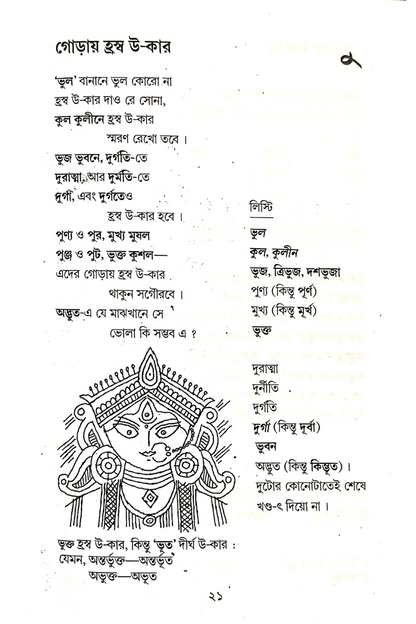 গোড়ায় হ্রস্ব উ-কার
'ভুল' বানানে ভুল কোরো না
হ্রস্ব উ-কার দাও রে সোনা,
কুল কুলীনে হ্রস্ব উ-কার
স্মরণ রেখো তবে।
ভুজ ভুবনে, দুর্গতি-তে
দুরাত্মা আর দুর্মতি-তে
দুর্গা, এবং দুর্গতেও
হ্রস্ব উ-কার হবে।
পুণ্য ও পুর, মুখ্য মুষল
পুঞ্জ ও পুট, ভুক্ত কুশল—
এদের গোড়ায় হ্রস্ব উ-কার
থাকুন সগৌরবে।
অদ্ভুত-এ যে মাঝখানে সে
ভোলা কি সম্ভব এ ?
লিস্টি
ভুল
কুল, কুলীন
ভুজ, ত্রিভুজ, দশভুজা
পুণ্য (কিন্তু পূর্ণ)
মুখ্য (কিন্তু মূর্খ)
ভুক্ত
দুরাত্মা
দুর্নীতি
দুর্গতি
দুর্গা (কিন্তু দূর্বা)
ভুবন
অদ্ভুত (কিন্তু কিম্ভূত)।
দুটোর কোনোটাতেই শেষে
খণ্ড-ৎ দিয়ো না।
ভুক্ত হ্রস্ব উ-কার, কিন্তু 'ভূত' দীর্ঘ উ-কার :
যেমন, অন্তর্ভুক্ত—অন্তর্ভূত
অভুক্ত—অভূত
২১